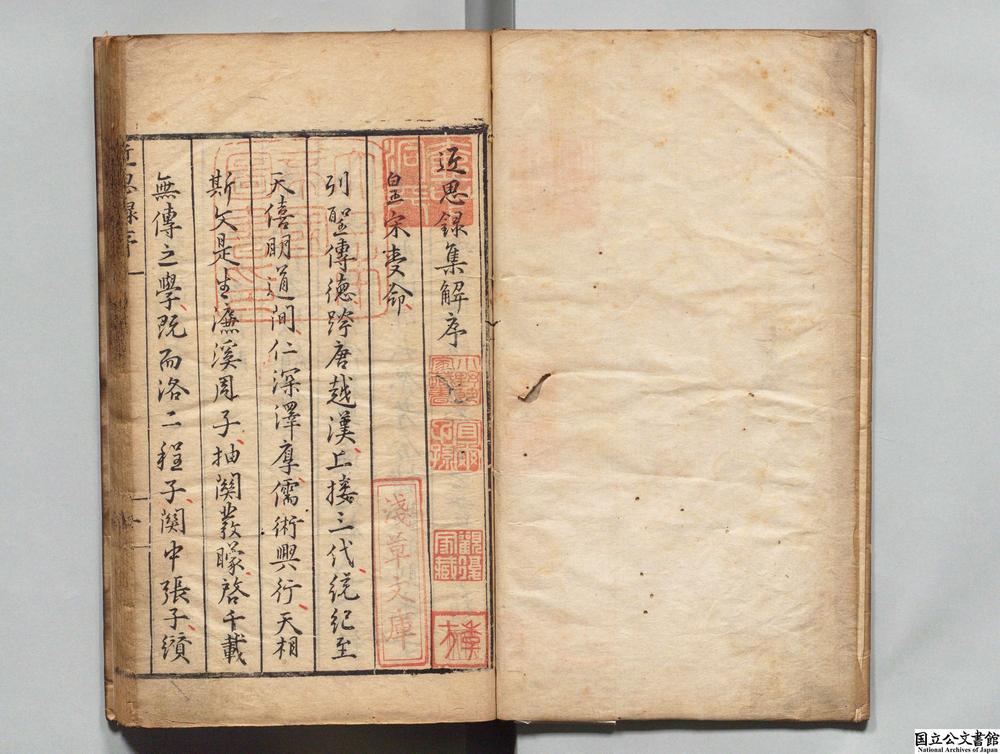 近思録集解序
皇宋受命
列聖傳德跨唐越漢上接三代統紀至
天僖明道間仁深澤厚儒術興行天相
斯文是生濂溪周子抽關發矇啓千載
無傳之學既而洛二程子關中張子纉
近思錄序
淺草文庫
家藏
国立公文書館
National Archives of Japan